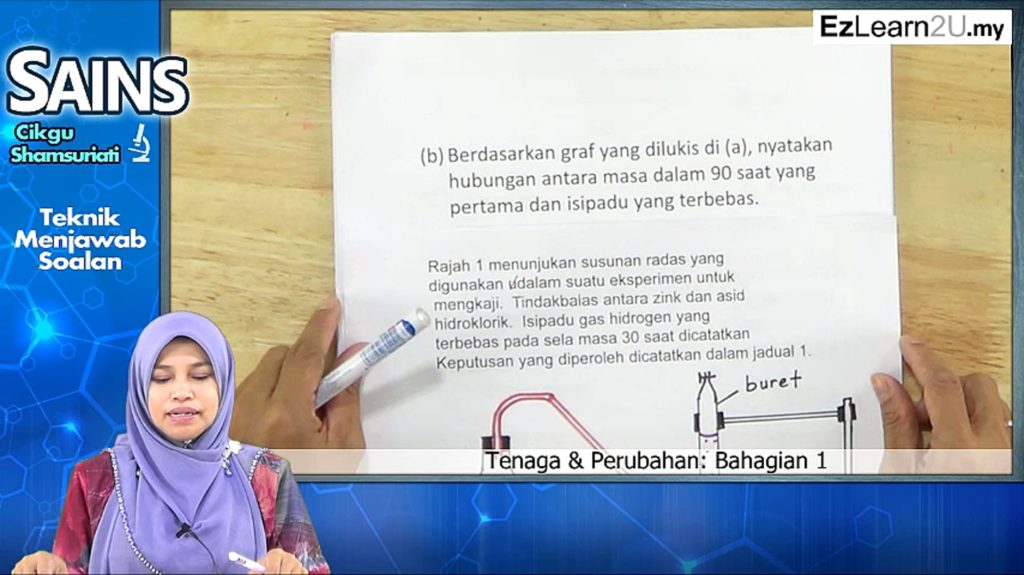 EzLearn2U.my
SAINS
Cikgu
Shamsuriati
Teknik
Menjawab
Soalan
(b) Berdasarkan graf yang dilukis di (a), nyatakan
hubungan antara masa dalam 90 saat yang
pertama dan isipadu yang terbebas.
Rajah 1 menunjukan susunan radas yang
digunakan dalam suatu eksperimen untuk
mengkaji. Tindakbalas antara zink dan asid
hidroklorik. Isipadu gas hidrogen yang
terbebas pada sela masa 30 saat dicatatkan
Keputusan yang diperoleh dicatatkan dalam jadual 1.
buret
Tenaga & Perubahan: Bahagian 1